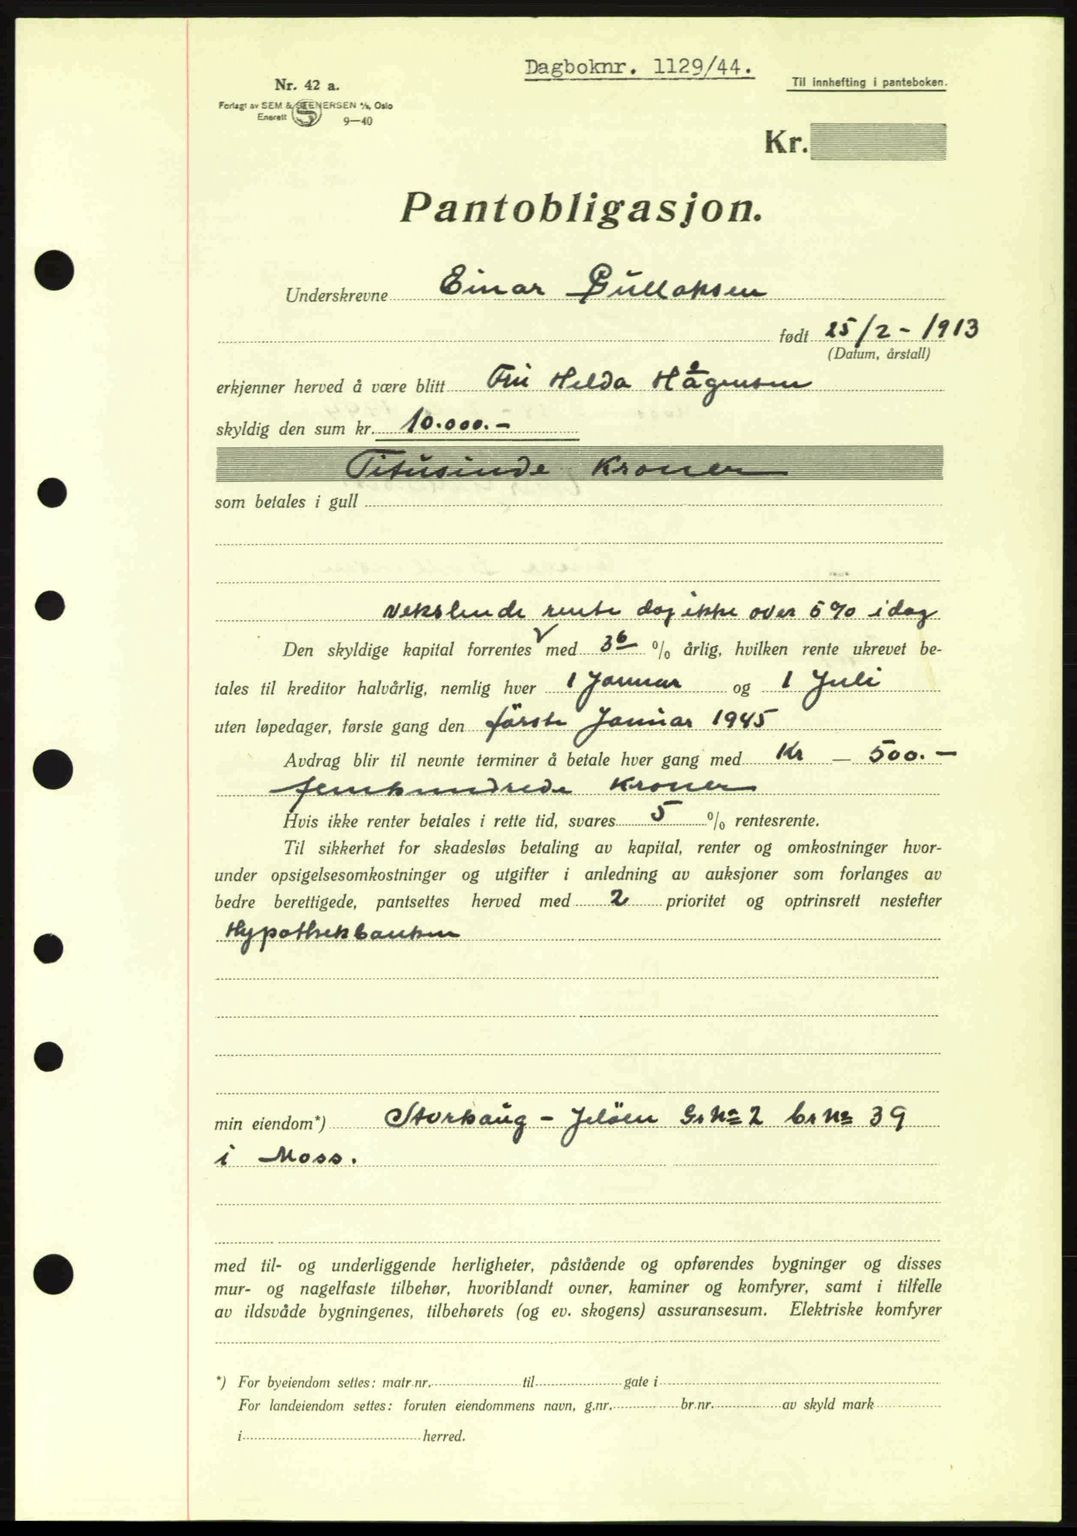 Dagboknr. 1129/44.
Til innhefting i panteboken.
Nr. 42 a.
Forlagt av SEM & STENERSEN A/S, Oslo
Enerett 9—40
Kr.
Pantobligasjon.
Underskrevne Einar Gullaksen
født 25/2 - 1913
(Datum, årstall)
erkjenner herved å være blitt Fru Helda Hågensen
skyldig den sum kr. 10.000.-
Titusinde Kroner
som betales i gull
vekslende rente dog ikke over 5% idag
Den skyldige kapital forrentes V med 3 6 % årlig, hvilken rente ukrevet be-
tales til kreditor halvårlig, nemlig hver 1 Januar og 1 Juli
uten løpedager, første gang den förste Januar 1945
Avdrag blir til nevnte terminer å betale hver gang med Kr — 500.—
femhundrede Kroner
Hvis ikke renter betales i rette tid, svares 5 % rentesrente.
Til sikkerhet for skadesløs betaling av kapital, renter og omkostninger hvor-
under opsigelsesomkostninger og utgifter i anledning av auksjoner som forlanges av
bedre berettigede, pantsettes herved med 2 prioritet og optrinsrett nestefter
Hypothekbanken
min eiendom*) Storhaug - Jelöen Gr No 2 br No 39
i Moss.
med til- og underliggende herligheter, påstående og opførendes bygninger og disses
mur- og nagelfaste tilbehør, hvoriblandt ovner, kaminer og komfyrer, samt i tilfelle
av ildsvåde bygningenes, tilbehørets (og ev. skogens) assuransesum. Elektriske komfyrer
*) For byeiendom settes: matr.nr. til gate i
For landeiendom settes: foruten eiendommens navn, g.nr. br.nr. av skyld mark
i herred.